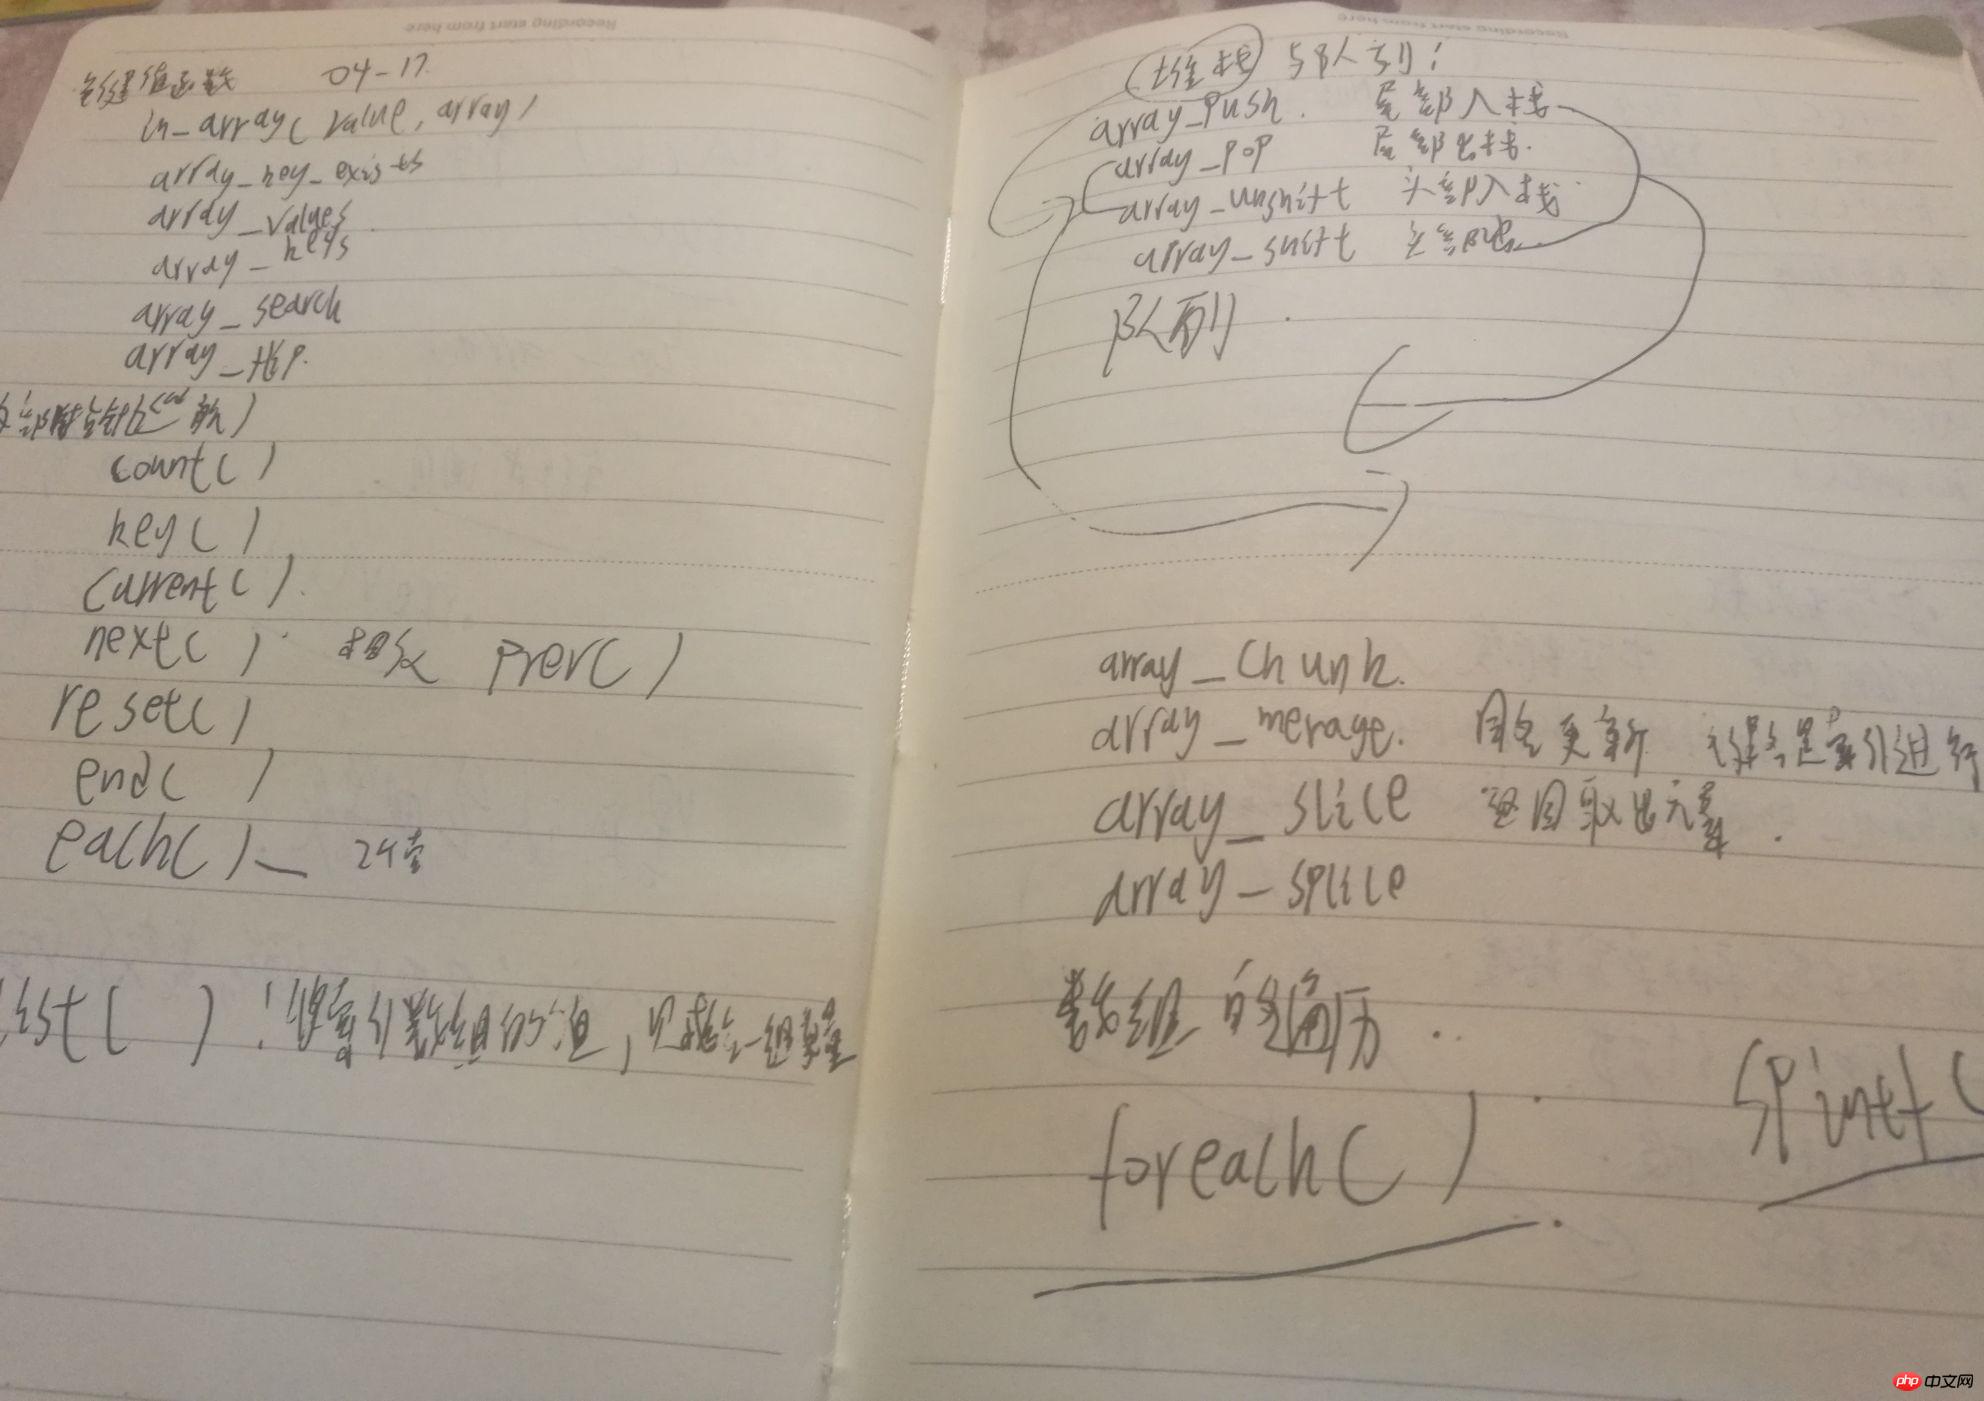 Recording start from here
键值函数 04-17
in_array( value, array)
array_key_exists
array_values
array_keys
array_search
array_flip.
count( )
key( )
current( ).
next( ) 相反 prev( )
reset( )
end( )
each( )
list( ) : 索引数组的值, 一组变量
Recording start from here
堆栈 与队列:
array_push. 尾部入栈
array_pop 尾部出栈.
array_unshift 头部入栈
array_shift 头部出
队列
array_chunk.
array_merage. 同名更新 索引进行
array_slice 返回取出元素.
array_splice
数组的遍历..
foreach( )
spintf(
php 中文网